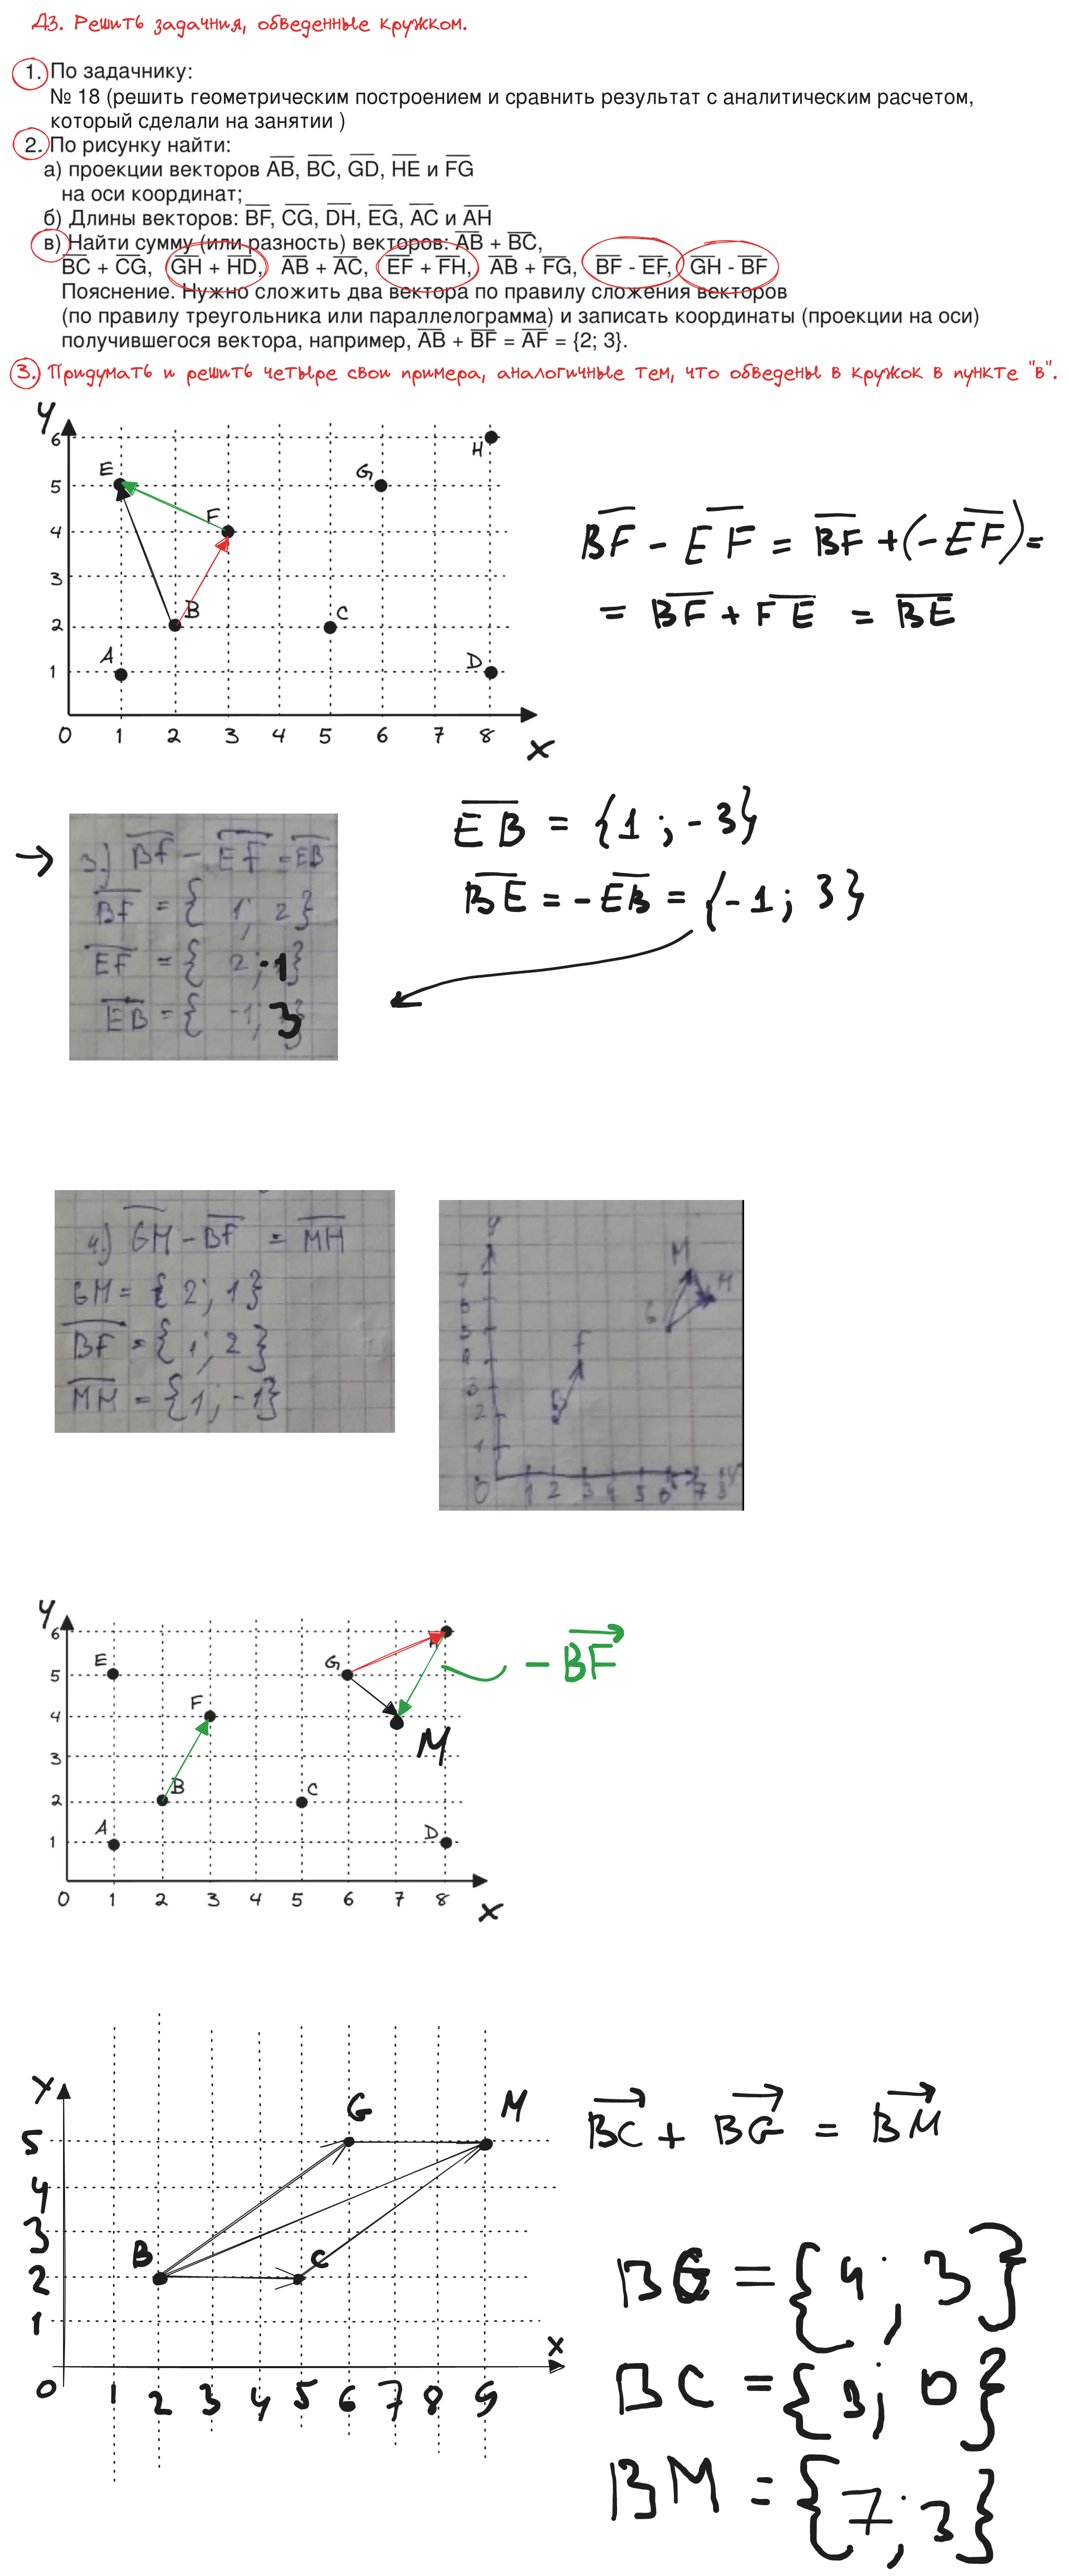 ДЗ. Решить задачния, обведенные кружком.
1. По задачнику:
№ 18 (решить геометрическим построением и сравнить результат с аналитическим расчетом,
который сделали на занятии )
2. По рисунку найти:
а) проекции векторов AB, BC, GD, HE и FG
на оси координат;
б) Длины векторов: BF, CG, DH, EG, AC и AH
в) Найти сумму (или разность) векторов: AB + BC,
BC + CG, GH + HD, AB + AC, EF + FH, AB + FG, BF - EF, GH - BF
Пояснение. Нужно сложить два вектора по правилу сложения векторов
(по правилу треугольника или параллелограмма) и записать координаты (проекции на оси)
получившегося вектора, например, AB + BF = AF = {2; 3}.
3. Придумать и решить четыре свои примера, аналогичные тем, что обведены в кружок в пункте "в".
y
6
H
E
G
5
F
4
3
B
C
2
A
D
1
0 1 2 3 4 5 6 7 8
x
BF - EF = BF + (- EF) =
= BF + FE = BE
→ 3.) BF - EF = EB
BF = { 1; 2}
EF = { 2; -1}
EB = { -1; 3}
EB = {1 ; - 3}
BE = - EB = {-1 ; 3}
4.) GH - BF = MH
GH = { 2; 1}
BF = { 1; 2}
MH = {1; -1}
y
7
M
6
H
G
5
4
F
3
2
B
1
0 1 2 3 4 5 6 7 8
y
6
E
G
5
F
4
M
3
B
C
2
A
D
1
0 1 2 3 4 5 6 7 8
x
- BF
y
G
M
5
4
3
B
C
2
1
x
0 1 2 3 4 5 6 7 8 9
BC + BG = BM
BG = {4 ; 3}
BC = {3; 0}
BM = {7; 3}